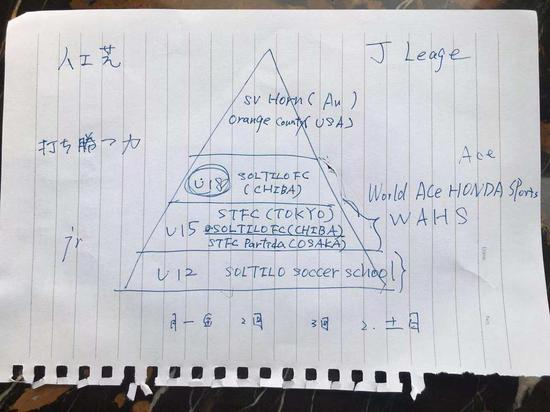 人工芝
J Leage
SV Horn (Au)
Orange County (USA)
打ち勝つ力
Ace
U18 SOLTILO FC
(CHIBA)
World Ace HONDA Sports
WAHS
STFC (TOKYO)
U15 SOLTILO FC (CHIBA)
STFC Partida (OSAKA)
jr
U12 SOLTILO soccer school
月-金 2回 3回 2. 土日